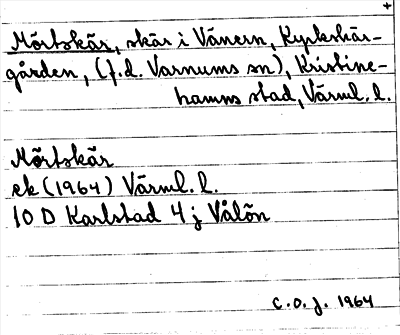 Mörtskär, skär i Vänern, Kyrkskär-
gården, (f.d. Varnums sn), Kristine-
hamns stad, Värml. l.
Mörtskär
ek (1964) Värml. l.
10 D Karlstad 4 j Vålön
C.O.J. 1964